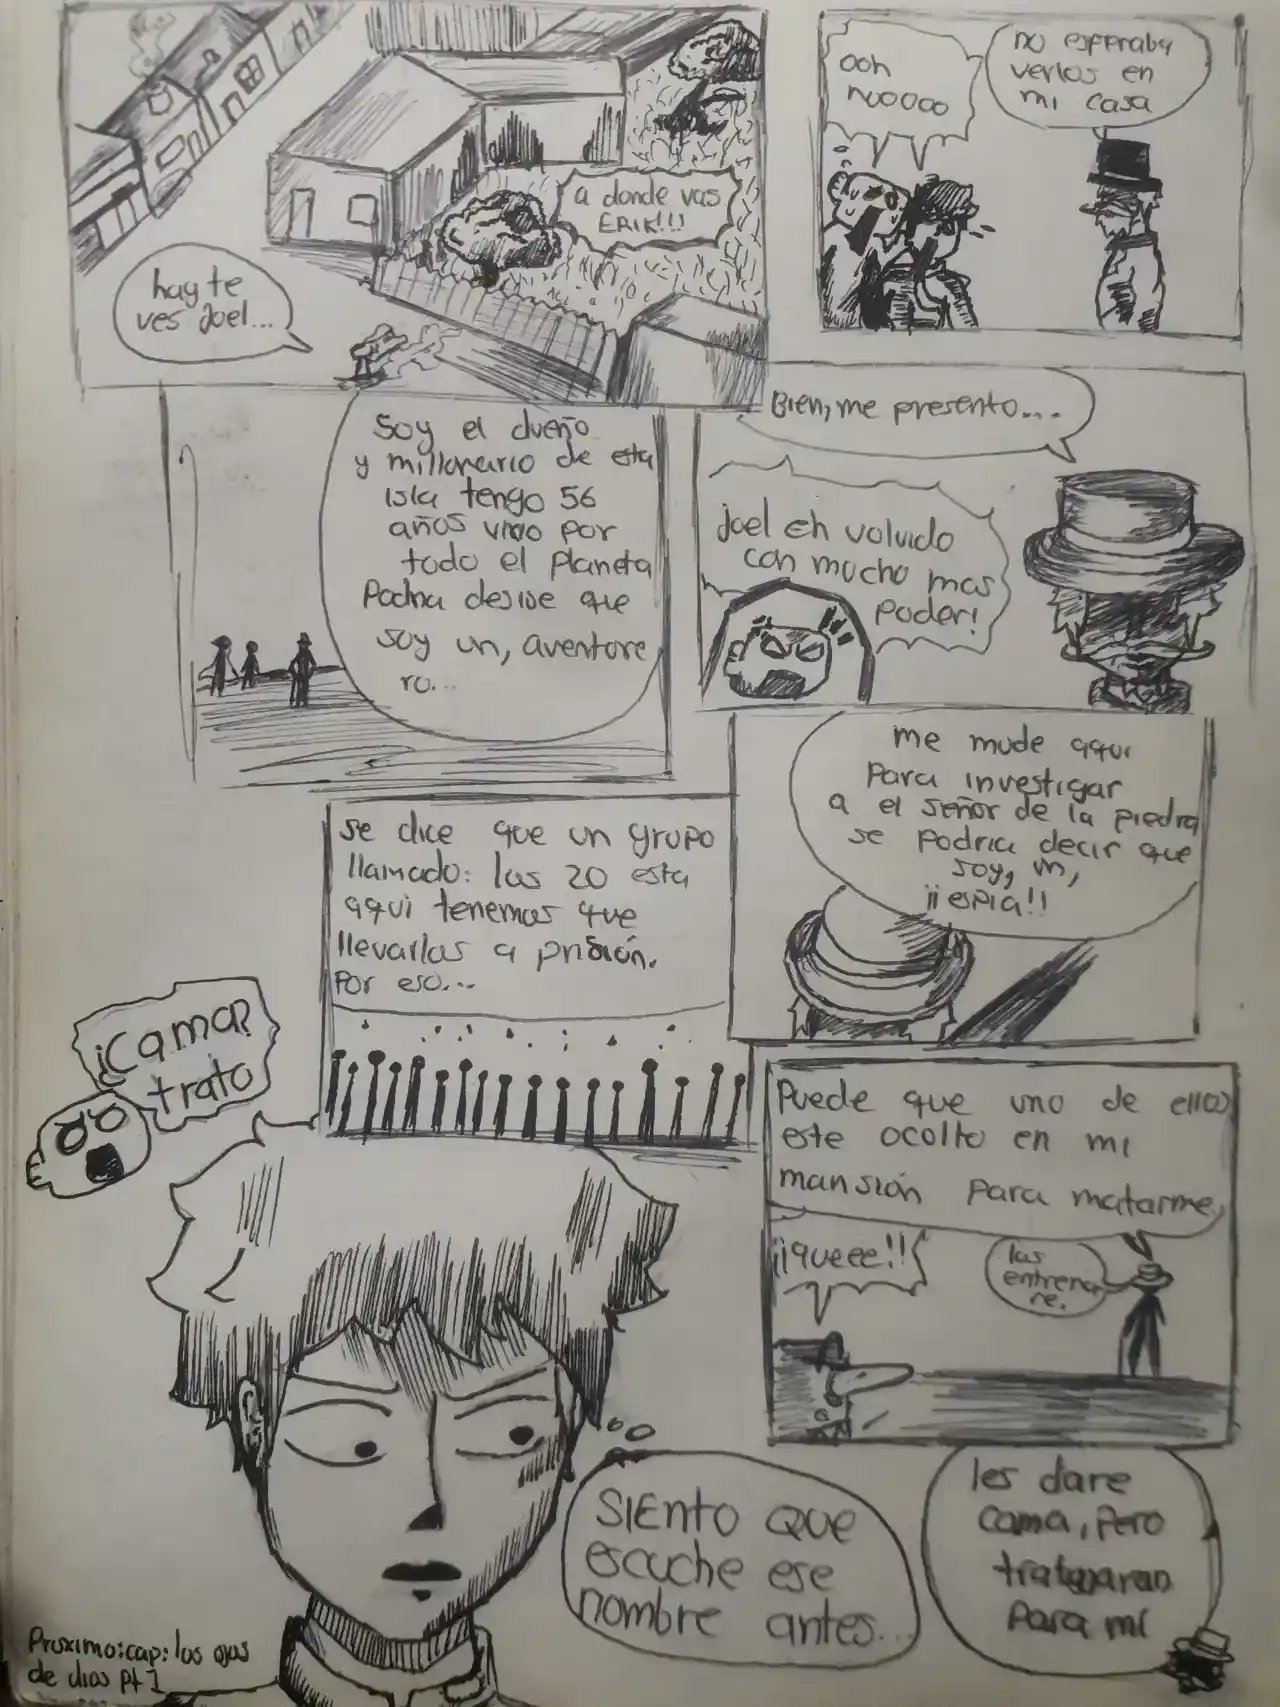 a donde vas
ERIK!!!
hay te
ves Joel...
ooh
nuoooo
no esperaba
verlos en
mi casa
Bien, me presento....
joel eh volvido
con mucho mas
poder!
Soy el dueño
y millonario de esta
isla tengo 56
años vivo por
todo el planeta
Podria desise que
soy un, aventore
ro...
me mude aqui
para investigar
a el señor de la piedra
se podria decir que
soy, un,
¡¡espia!!
se dice que un grupo
llamado: los 20 esta
aqui tenemos que
llevarlos a prisión.
Por eso...
Puede que uno de ellos
este ocolto en mi
mansión para matarme
¡¡queee!!
los
entrena
re.
les dare
cama, pero
para mi
¿cama?
trato
SIENTO QUE
escuche ese
nombre antes...
Proximo:cap: los ojos
de dios pt 1